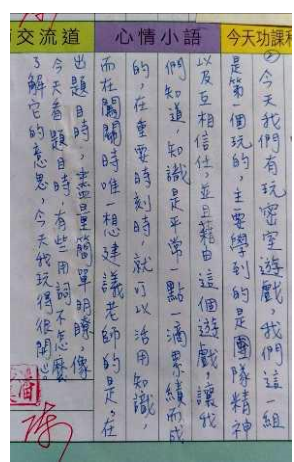 今天功課
心情小語
交流道
②今天我們有玩密室遊戲,我們這一組
是第一個玩的,主要學到的是團隊精神
以及互相信任,並且藉由這個遊戲讓我
們知道,知識是平常一點一滴累績而成
的,在重要時刻時,就可以活用知識,
而在闖關時唯一想建議老師的是,在
出題目時,盡量簡單明瞭,像
今天看題目時,有些用詞不怎麼
了解它的意思,今天我玩得很開心。